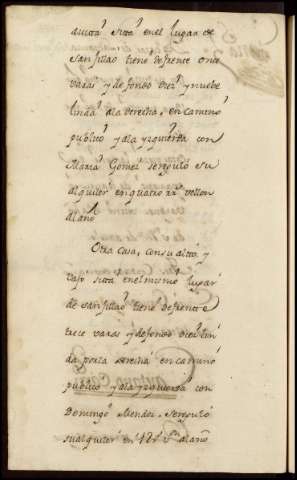 avita Sita en el lugar de
San fillao tiene de frente once
varas y de fondo diez y nueve
linda a la derecha, en camino
publico y a la yzquierda con
Maria Gomes Seregulo su
alquiler en quatro rr.s vellon
al año
Otra Casa, con su alto, y
vajo sita en el mismo lugar
de San fillao tiene de frente
trece varas y de fondo diez lin
da por la derecha en camino
publico y a la yzquierda con
Domingo Mendes, Seregulo
su alquiler en al año